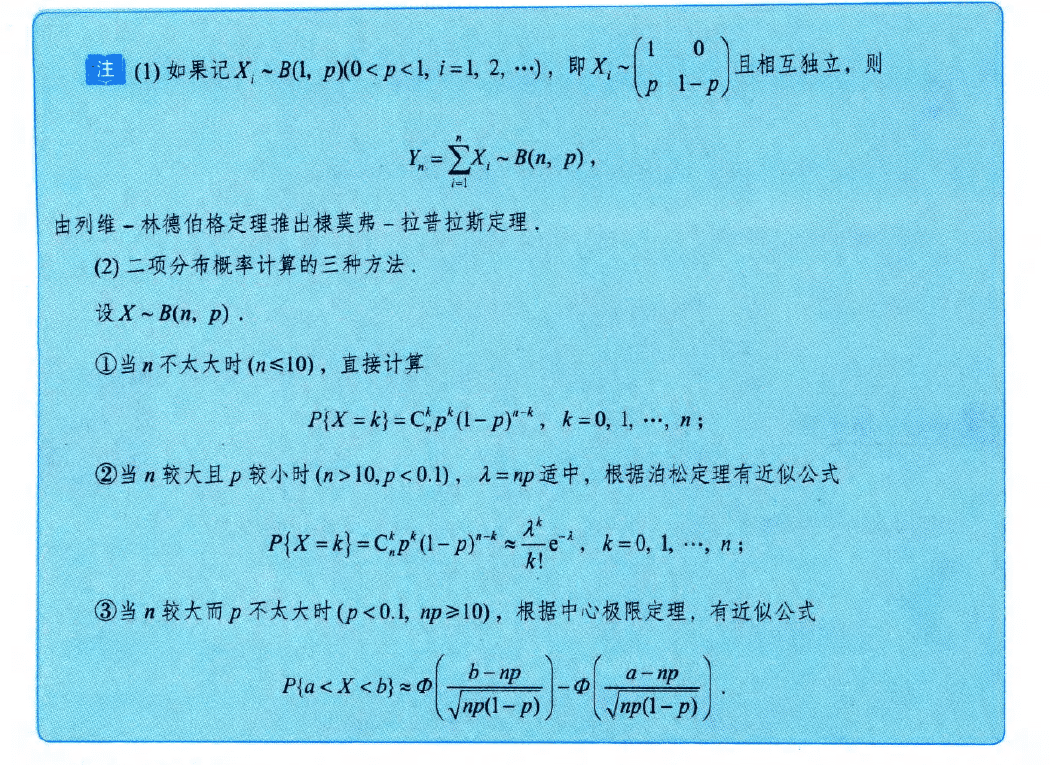 注 (1) 如果记 X_i ~ B(1, p)(0 < p < 1, i = 1, 2, …)，即 X_i ~ (1 0; p 1−p) 且相互独立，则
Y_n = ∑_{i=1}^{n} X_i ~ B(n, p)，
由列维－林德伯格定理推出棣莫弗－拉普拉斯定理．
(2) 二项分布概率计算的三种方法．
设 X ~ B(n, p)．
①当 n 不太大时 (n ≤ 10)，直接计算
P{X = k} = C_n^k p^k (1 − p)^{n−k}，k = 0, 1, …, n；
②当 n 较大且 p 较小时 (n > 10, p < 0.1)，λ = np 适中，根据泊松定理有近似公式
P{X = k} = C_n^k p^k (1 − p)^{n−k} ≈ λ^k/k! e^{−λ}，k = 0, 1, …, n；
③当 n 较大而 p 不太大时 (p < 0.1, np ≥ 10)，根据中心极限定理，有近似公式
P{a < X < b} ≈ Φ((b − np)/√(np(1 − p))) − Φ((a − np)/√(np(1 − p)))．